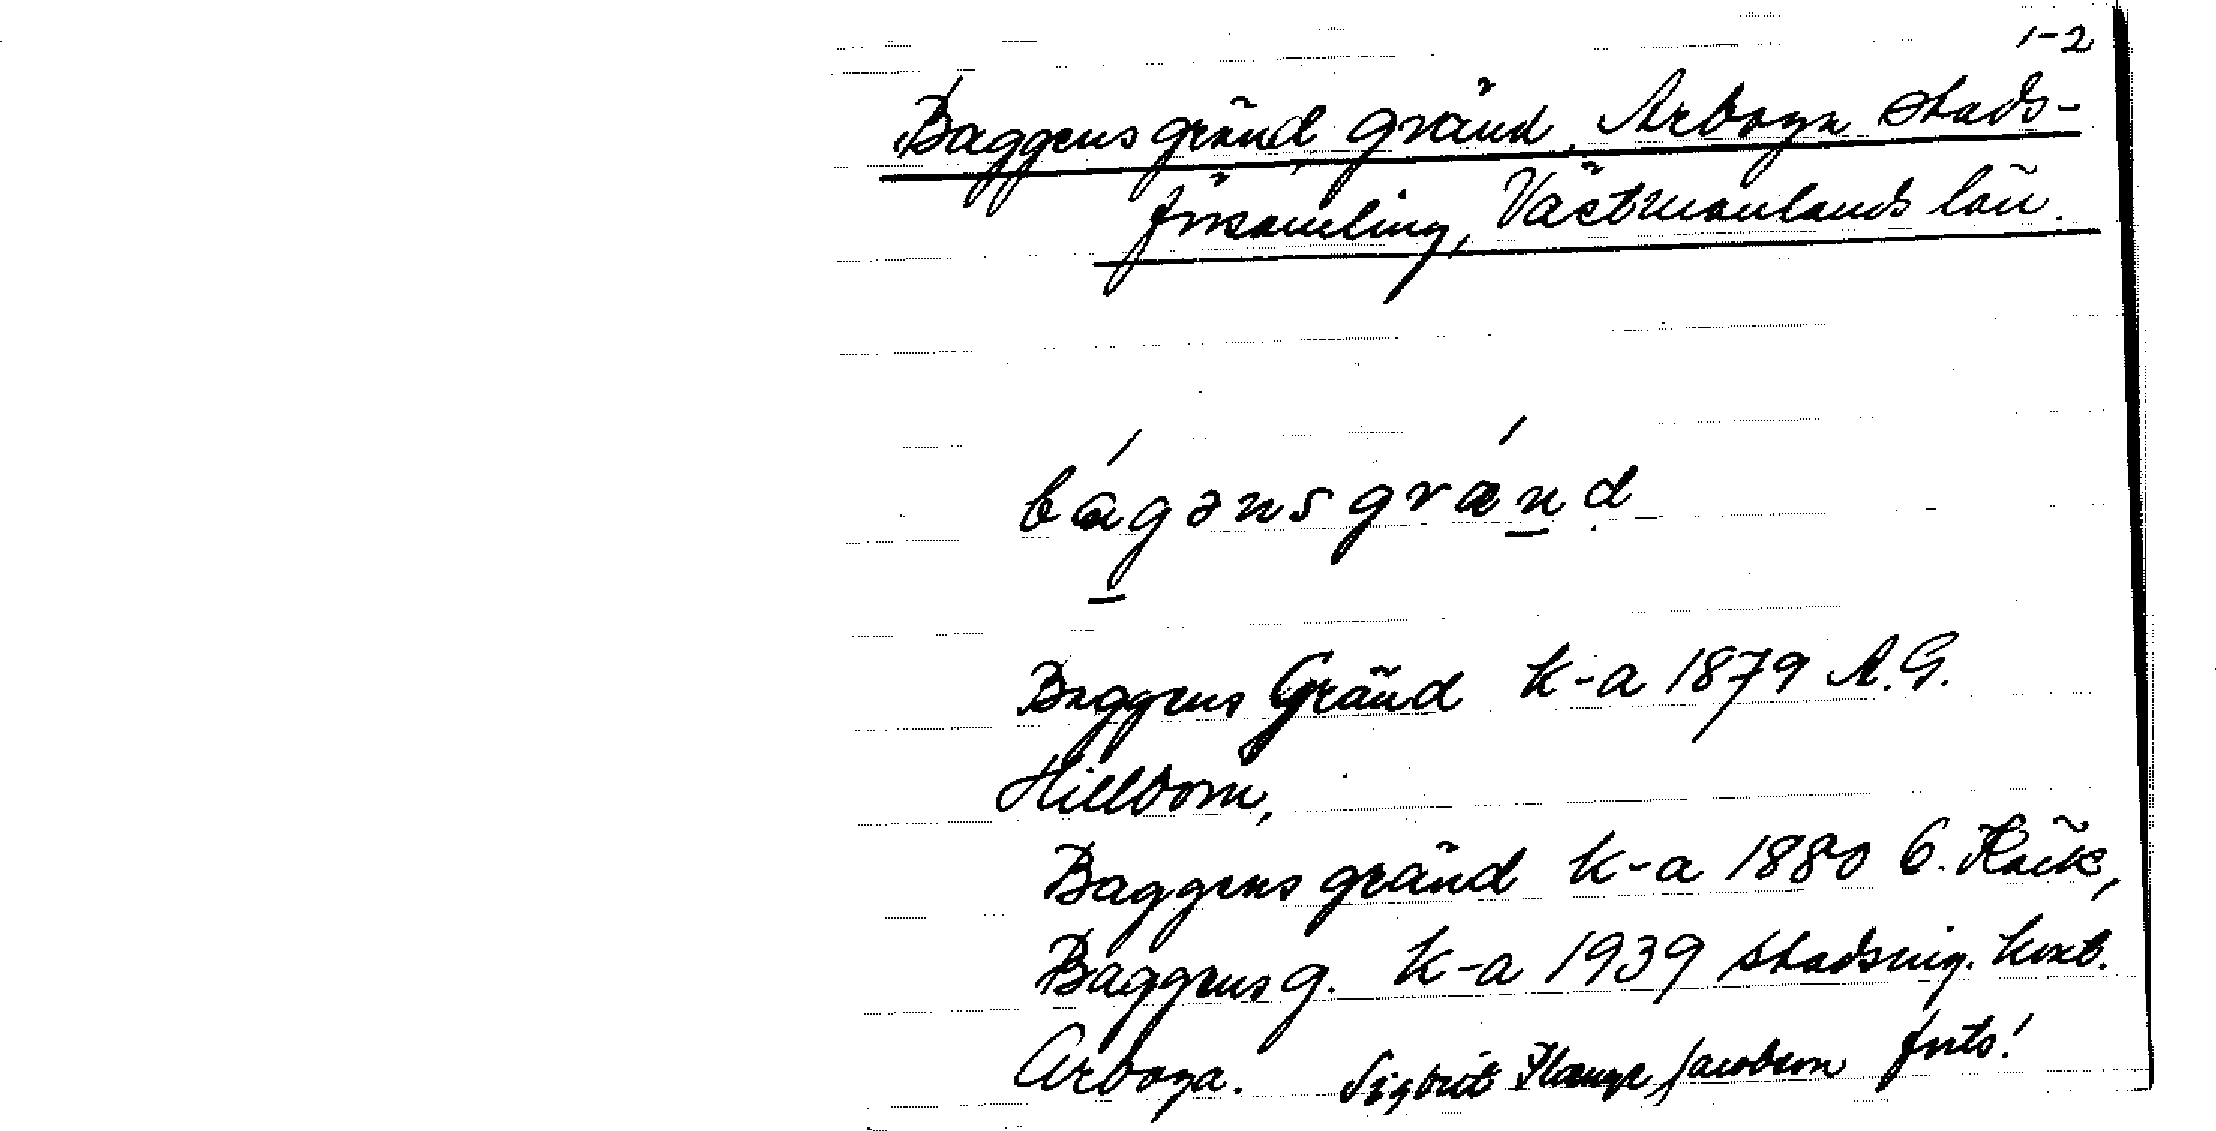 1-2
Baggensgränd gränd, Arboga stads-
församling, Västmanlands län.
bágənsgrænd
Baggens Gränd k-a 1879 A.G.
Hillbom,
Baggens gränd k-a 1880 C. Käck,
Baggens g. k-a 1939 stadsing. kont.
Arboga. Sigbrit Plænge Jacobson forts!